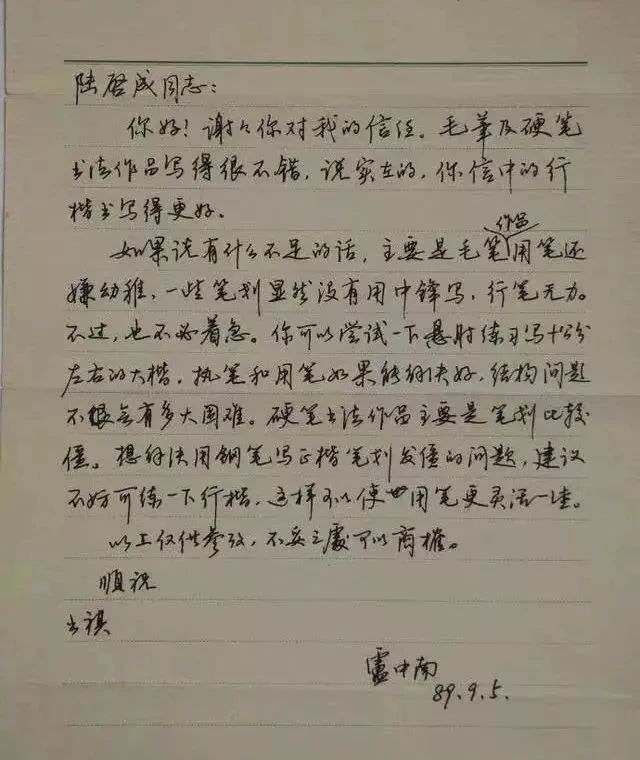 陆启成同志：
你好！谢々你对我的信任。毛筆及硬笔
书法作品写得很不错，说实在的，你信中的行
楷书写得更好。
作品
如果说有什么不足的话，主要是毛笔用笔还
嫌幼稚，一些笔划显然没有用中锋写，行笔无力。
不过，也不必着急。你可以尝试一下悬肘练习写十公分
左右的大楷，执笔和用笔如果能解决好，结构问题
不会有多大困难。硬笔书法作品主要是笔划比较
僵。想解决用钢笔写正楷笔划发僵的问题，建议
不妨可练一下行楷，这样可以使用笔更灵活一些。
以上仅供参考，不妥之處可以商榷。
顺祝
书祺
盧中南
89.9.5.